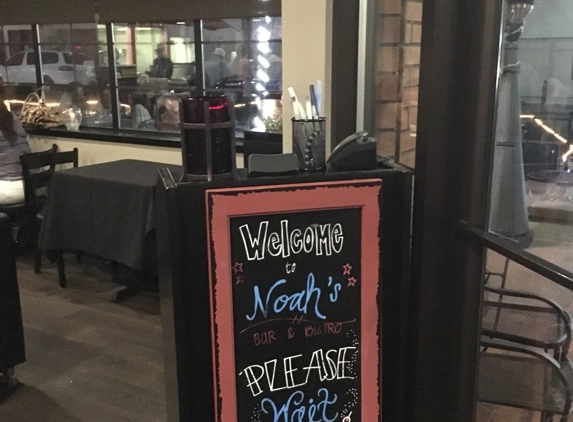 Welcome
to
Noah's
BAR & BISTRO
PLEASE
Wait